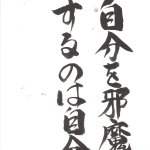 自分を邪魔
するのは自分